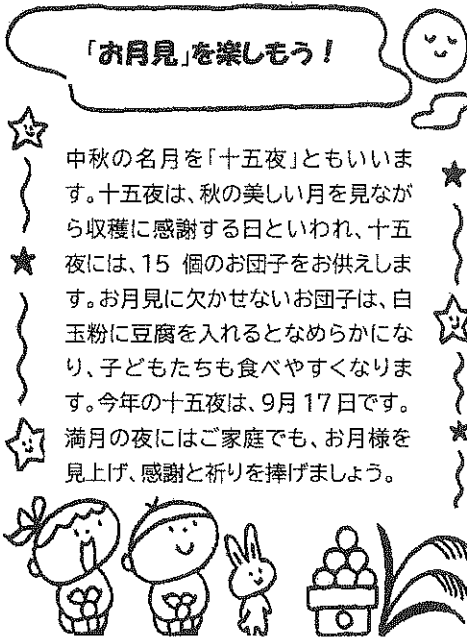 「お月見」を楽しもう！
中秋の名月を「十五夜」ともいいま
す。十五夜は、秋の美しい月を見なが
ら収穫に感謝する日といわれ、十五
夜には、15 個のお団子をお供えしま
す。お月見に欠かせないお団子は、白
玉粉に豆腐を入れるとなめらかにな
り、子どもたちも食べやすくなりま
す。今年の十五夜は、9月17日です。
満月の夜にはご家庭でも、お月様を
見上げ、感謝と祈りを捧げましょう。